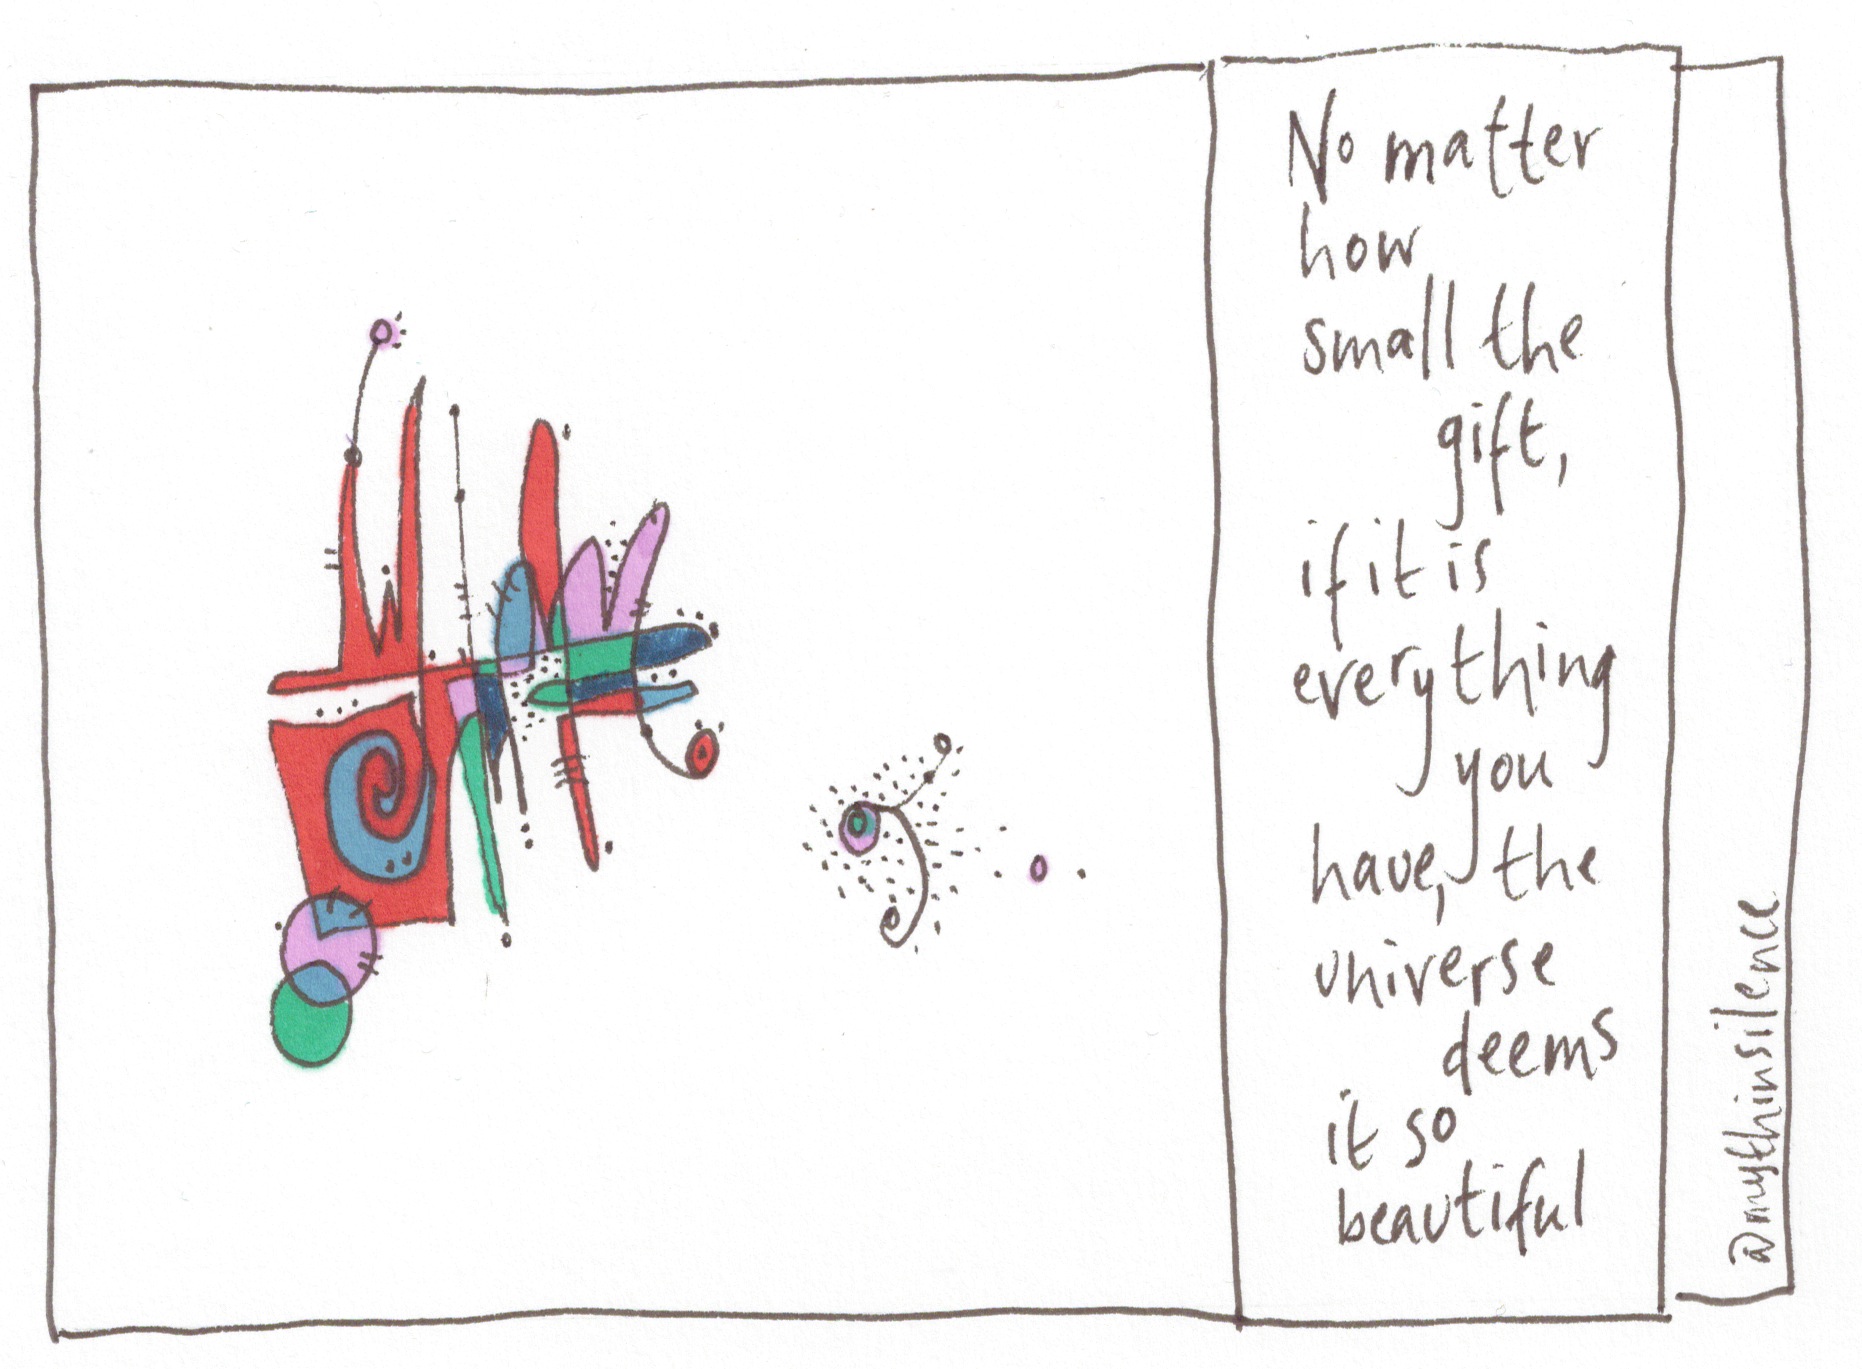 No matter
how
small the
gift,
if it is
everything
you
have, the
universe
deems
it so
beautiful
@mythinsilence